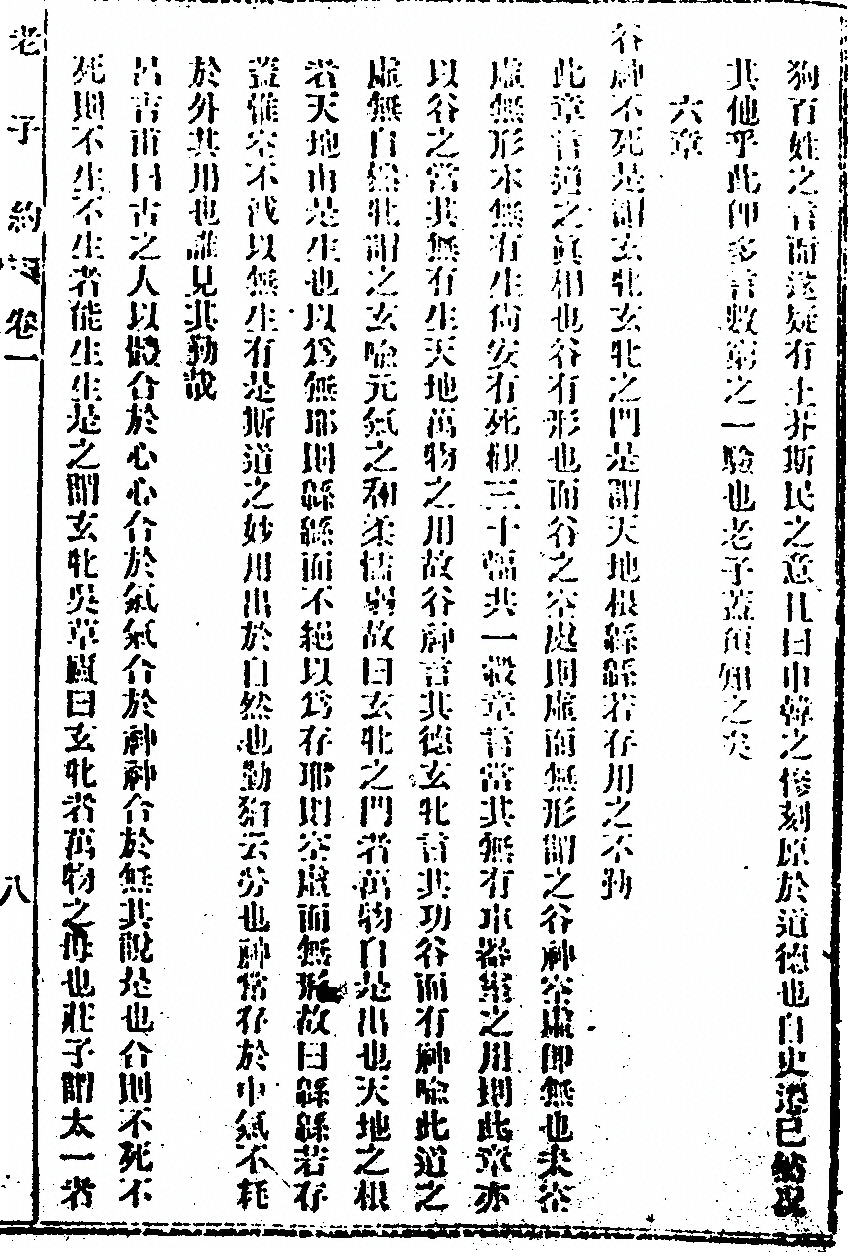 狗百姓之言而遂疑有土芥斯民之意且曰申韓之慘刻原於道德也自史遷已然況
其他乎此卽多言數窮之一驗也老子蓋預知之矣
六章
谷神不死是謂玄牝玄牝之門是謂天地根緜緜若存用之不勤
此章言道之眞相也谷有形也而谷之空處則虛而無形謂之谷神空虛卽無也夫空
虛無形本無有生尙安有死觀三十輻共一轂章言當其無有車器室之用則此章亦
以谷之當其無有生天地萬物之用故谷神言其德玄牝言其功谷而有神喩此道之
虛無自然牝謂之玄喩元氣之和柔懦弱故曰玄牝之門者萬物自是出也天地之根
者天地由是生也以爲無耶則緜緜而不絕以爲存耶則空虛而無形故曰緜緜若存
蓋惟空不滅以無生有是斯道之妙用出於自然也勤猶云勞也神常存於中氣不耗
於外其用也誰見其勤哉
呂吉甫曰古之人以體合於心心合於氣氣合於神神合於無其說是也合則不死不
死則不生不生者能生生是之謂玄牝吳草廬曰玄牝者萬物之母也莊子謂太一者
老子約 卷一
八